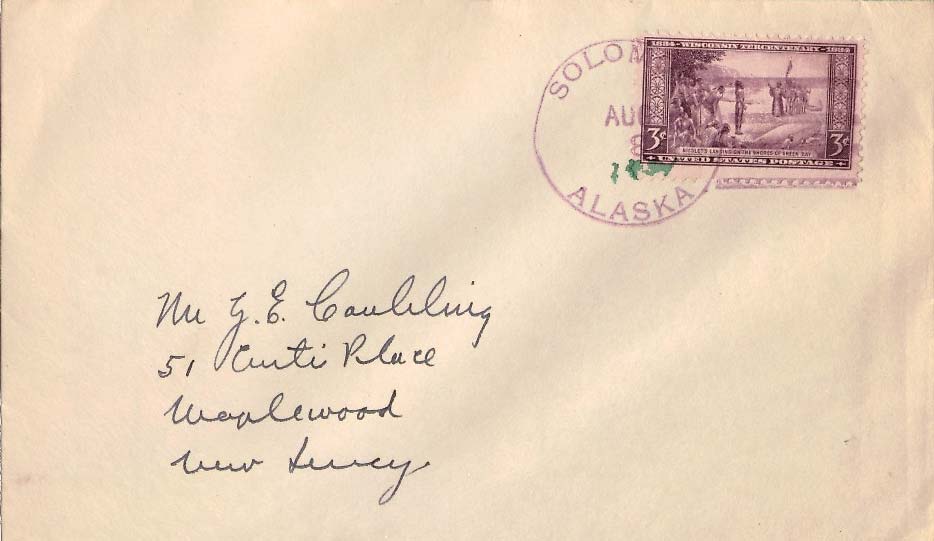 SOLOM
AUG
8
ALASKA
1634-WISCONSIN TERCENTENARY-1934
3¢ 3¢
NICOLET'S LANDING ON THE SHORES OF GREEN BAY
UNITED STATES POSTAGE
Mr G. E.
51 Place
Maplewood
New Jersey